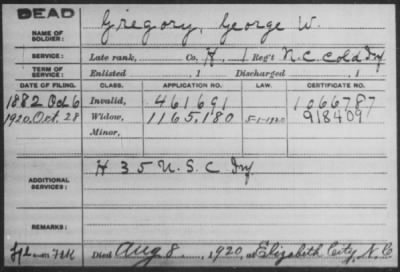 DEAD
NAME OF SOLDIER: Gregory, George W.
SERVICE: Late rank, Co. H, 1 Reg't N.C. Cold Inf
TERM OF SERVICE: Enlisted , 1 Discharged , 1
DATE OF FILING. CLASS. APPLICATION NO. LAW. CERTIFICATE NO.
1882 Oct 6 Invalid, 461691 1066787
1920, Oct. 28 Widow, 1165.180 5-1-1920 918409
Minor,
ADDITIONAL SERVICES: H 35 U.S.C Inf
REMARKS:
Died Aug 8, 1920, at Elizabeth City, N.C